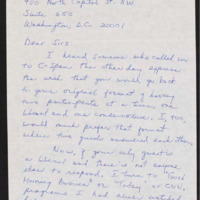 400 North Capitol St. NW
Suite 650
Washington, D.C. 20001
Dear Sirs:
I heard someone who called in
to C-Span the other day express
the wish that you would go back
to your original format of having
two participants at a time, one
liberal and one conservative. I, too,
would much prefer that format
where two guests answered each other.
Now, if your only guest is
a liberal and there is not anyone
else to respond, I turn to "Good
Morning America" or "Today" or CNN,
programs I had never watched